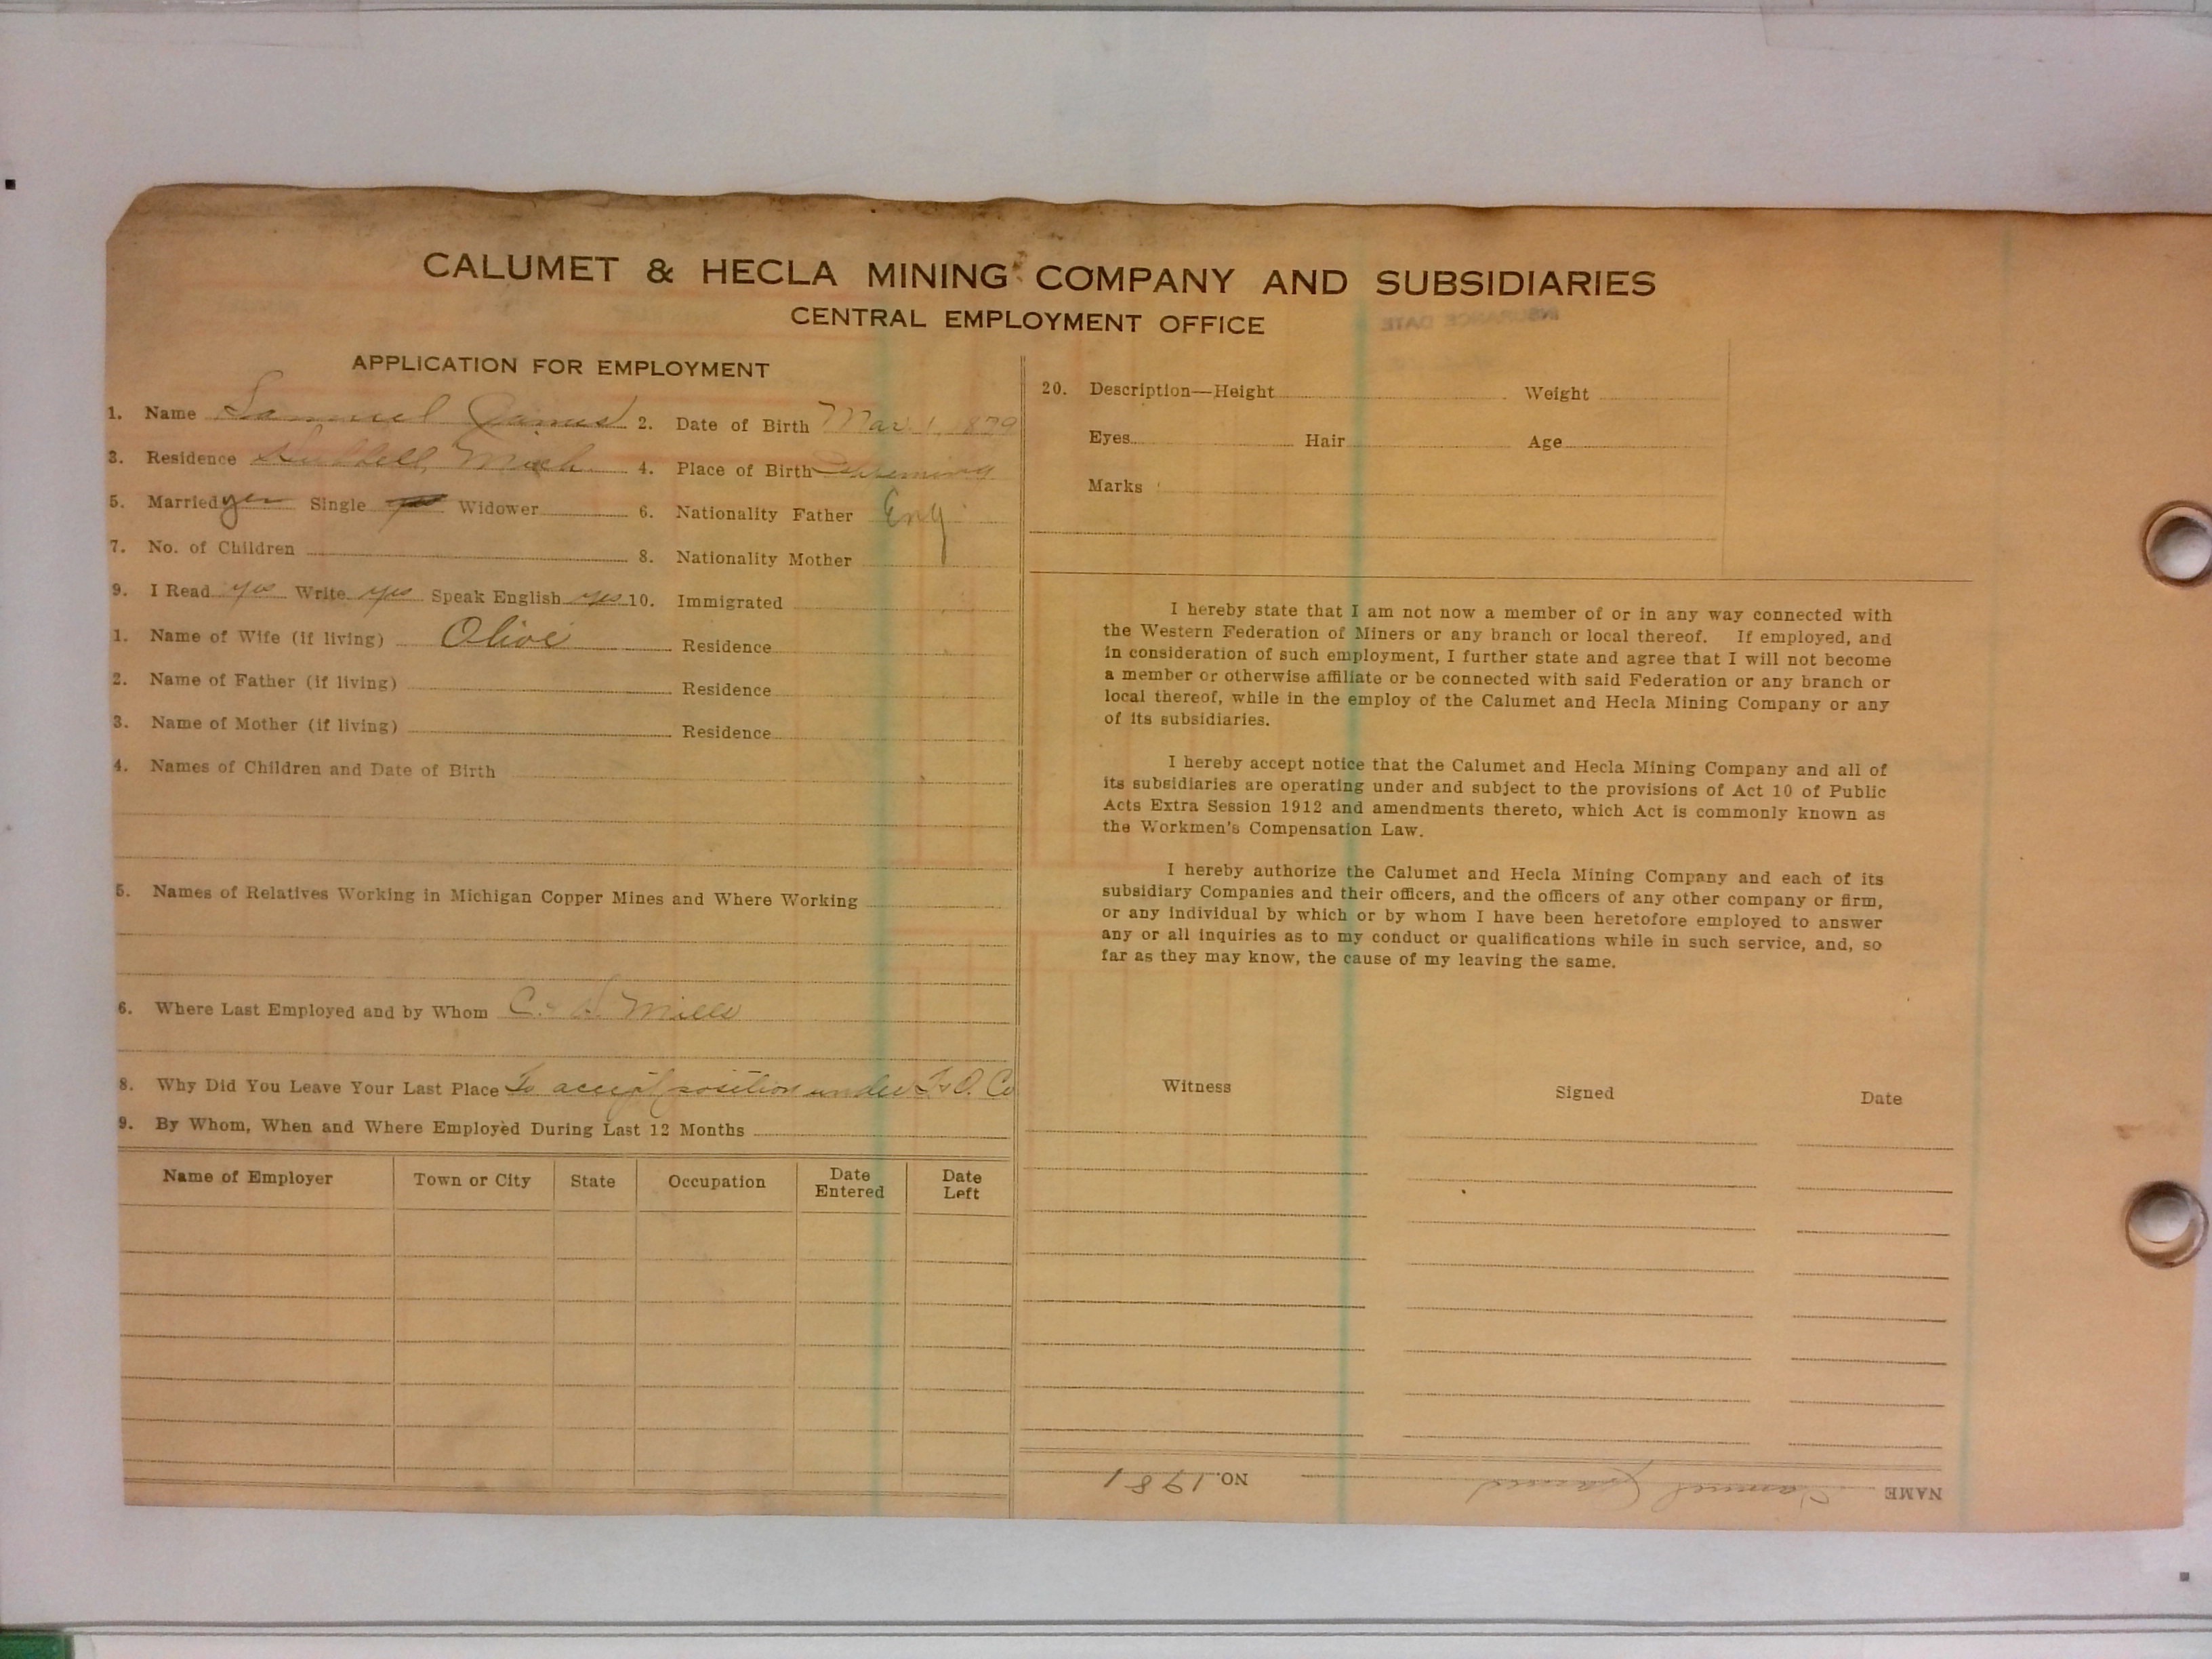 CALUMET & HECLA MINING COMPANY AND SUBSIDIARIES
CENTRAL EMPLOYMENT OFFICE
INSURANCE DATE
APPLICATION FOR EMPLOYMENT
1. Name Samuel James 2. Date of Birth Mar. 1, 1879
3. Residence Hubbell, Mich 4. Place of Birth
5. Married yes Single Widower 6. Nationality Father Eng
7. No. of Children 8. Nationality Mother
9. I Read yes Write yes Speak English yes 10. Immigrated
1. Name of Wife (if living) Olive Residence
2. Name of Father (if living) Residence
3. Name of Mother (if living) Residence
4. Names of Children and Date of Birth
5. Names of Relatives Working in Michigan Copper Mines and Where Working
6. Where Last Employed and by Whom C. & H. Mills
8. Why Did You Leave Your Last Place To accept position under Co
9. By Whom, When and Where Employed During Last 12 Months
Name of Employer Town or City State Occupation Date Entered Date Left
20. Description—Height Weight
Eyes Hair Age
Marks
I hereby state that I am not now a member of or in any way connected with
the Western Federation of Miners or any branch or local thereof. If employed, and
in consideration of such employment, I further state and agree that I will not become
a member or otherwise affiliate or be connected with said Federation or any branch or
local thereof, while in the employ of the Calumet and Hecla Mining Company or any
of its subsidiaries.
I hereby accept notice that the Calumet and Hecla Mining Company and all of
its subsidiaries are operating under and subject to the provisions of Act 10 of Public
Acts Extra Session 1912 and amendments thereto, which Act is commonly known as
the Workmen's Compensation Law.
I hereby authorize the Calumet and Hecla Mining Company and each of its
subsidiary Companies and their officers, and the officers of any other company or firm,
or any individual by which or by whom I have been heretofore employed to answer
any or all inquiries as to my conduct or qualifications while in such service, and, so
far as they may know, the cause of my leaving the same.
Witness Signed Date
NAME Samuel James NO. 1981